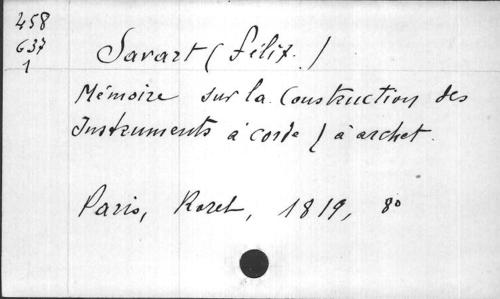 458
637
1
Savart (Félix.)
Mémoire sur la Construction des
Instruments à corde / à archet.
Paris, Roret, 1819, 8°